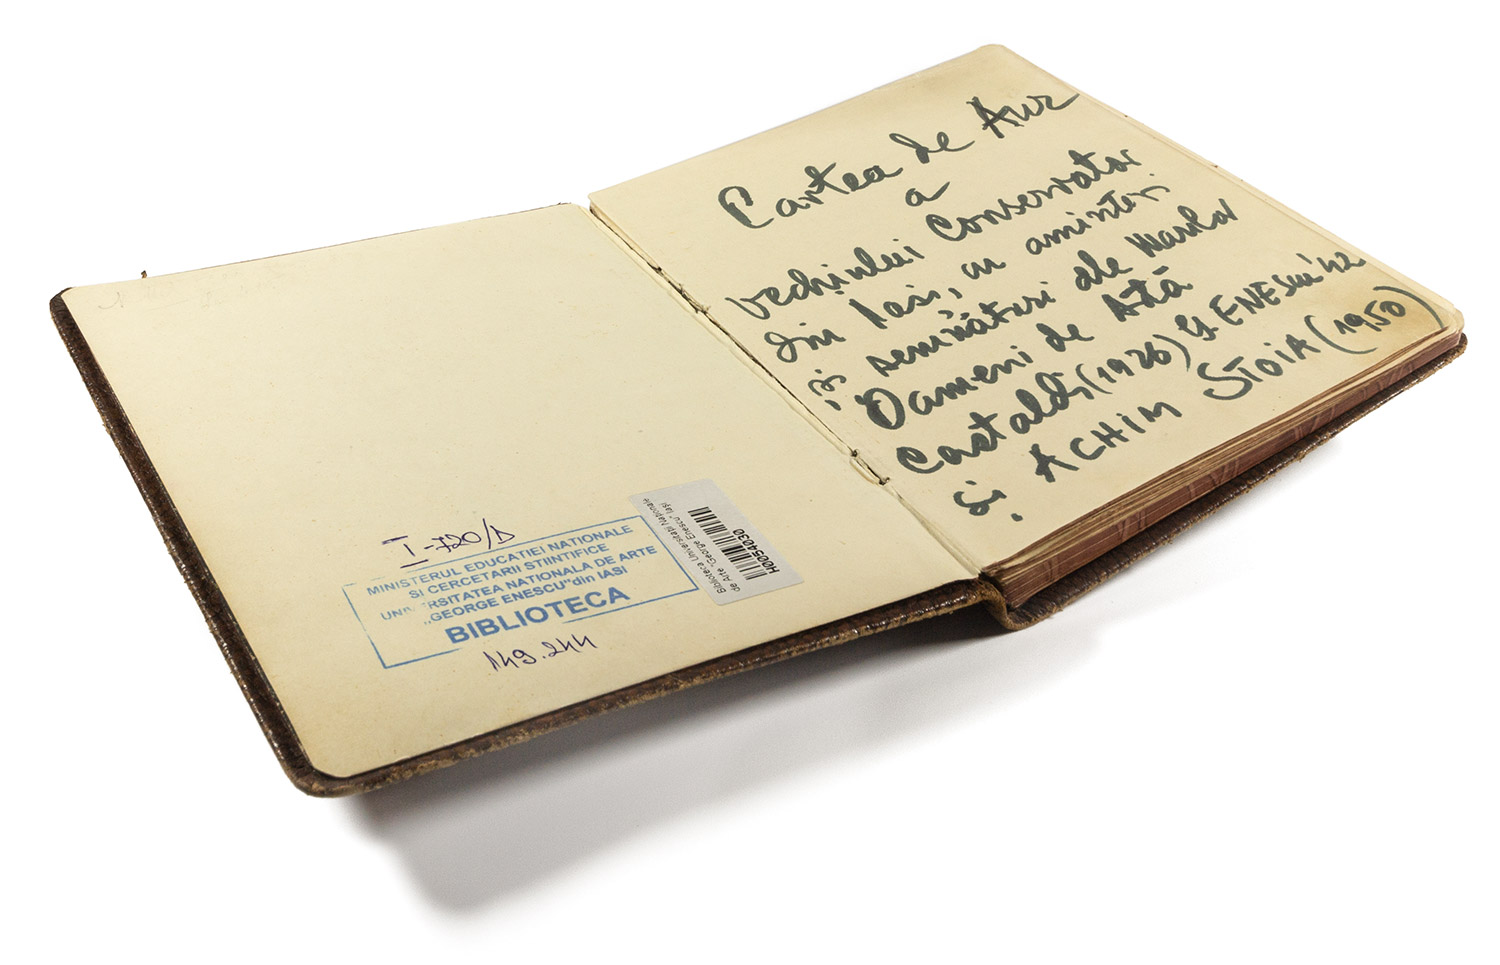 I-720/D
MINISTERUL EDUCATIEI NATIONALE
SI CERCETARII STIINTIFICE
UNIVERSITATEA NATIONALA DE ARTE
„GEORGE ENESCU" din IASI
BIBLIOTECA
149.244
Biblioteca Universităţii Naţionale
de Arte "George Enescu" Iaşi
H0054030
Cartea de Aur
a
vechiului Conservator
din Iasi, cu amintiri
și semnături ale Marilor
Oameni de Artă
Castaldi (1926) G. ENESCU '42
și ACHIM STOIA (1950)